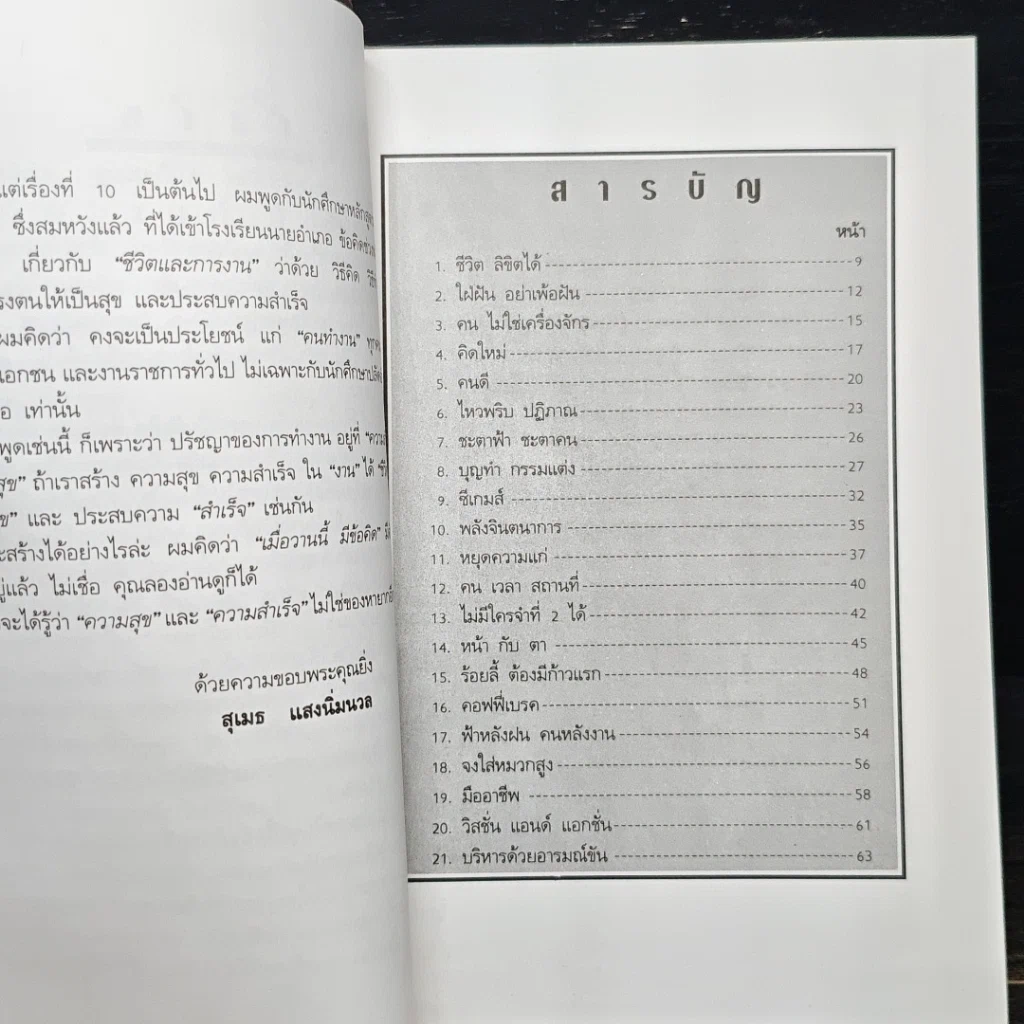 แต่เรื่องที่ 10 เป็นต้นไป ผมพูดกับนักศึกษาหลักสูตร
ซึ่งสมหวังแล้ว ที่ได้เข้าโรงเรียนนายอำเภอ
เกี่ยวกับ "ชีวิตและการงาน" ว่าด้วย วิธีคิด
ตนให้เป็นสุข และประสบความสำเร็จ
ผมคิดว่า คงจะเป็นประโยชน์ แก่ "คนทำงาน"
เอกชน และงานราชการทั่วไป ไม่เฉพาะกับนักศึกษา
เท่านั้น
พูดเช่นนี้ ก็เพราะว่า ปรัชญาของการทำงาน อยู่ที่
ถ้าเราสร้าง ความสุข ความสำเร็จ ใน "งาน" ได้
และ ประสบความ "สำเร็จ" เช่นกัน
สร้างได้อย่างไรล่ะ ผมคิดว่า "เมื่อวานนี้ มีข้อคิด"
แล้ว ไม่เชื่อ คุณลองอ่านดูก็ได้
จะได้รู้ว่า "ความสุข" และ "ความสำเร็จ" ไม่ใช่ของหายาก
ด้วยความขอบพระคุณยิ่ง
สุเมธ แสงนิ่มนวล
สารบัญ
หน้า
1. ชีวิต ลิขิตได้ 9
2. ใฝ่ฝัน อย่าเพ้อฝัน 12
3. คน ไม่ใช่เครื่องจักร 15
4. คิดใหม่ 17
5. คนดี 20
6. ไหวพริบ ปฏิภาณ 23
7. ชะตาฟ้า ชะตาคน 26
8. บุญทำ กรรมแต่ง 27
9. ซีเกมส์ 32
10. พลังจินตนาการ 35
11. หยุดความแก่ 37
12. คน เวลา สถานที่ 40
13. ไม่มีใครจำที่ 2 ได้ 42
14. หน้า กับ ตา 45
15. ร้อยลี้ ต้องมีก้าวแรก 48
16. คอฟฟี่เบรค 51
17. ฟ้าหลังฝน คนหลังงาน 54
18. จงใส่หมวกสูง 56
19. มืออาชีพ 58
20. วิสชั่น แอนด์ แอกชั่น 61
21. บริหารด้วยอารมณ์ขัน 63